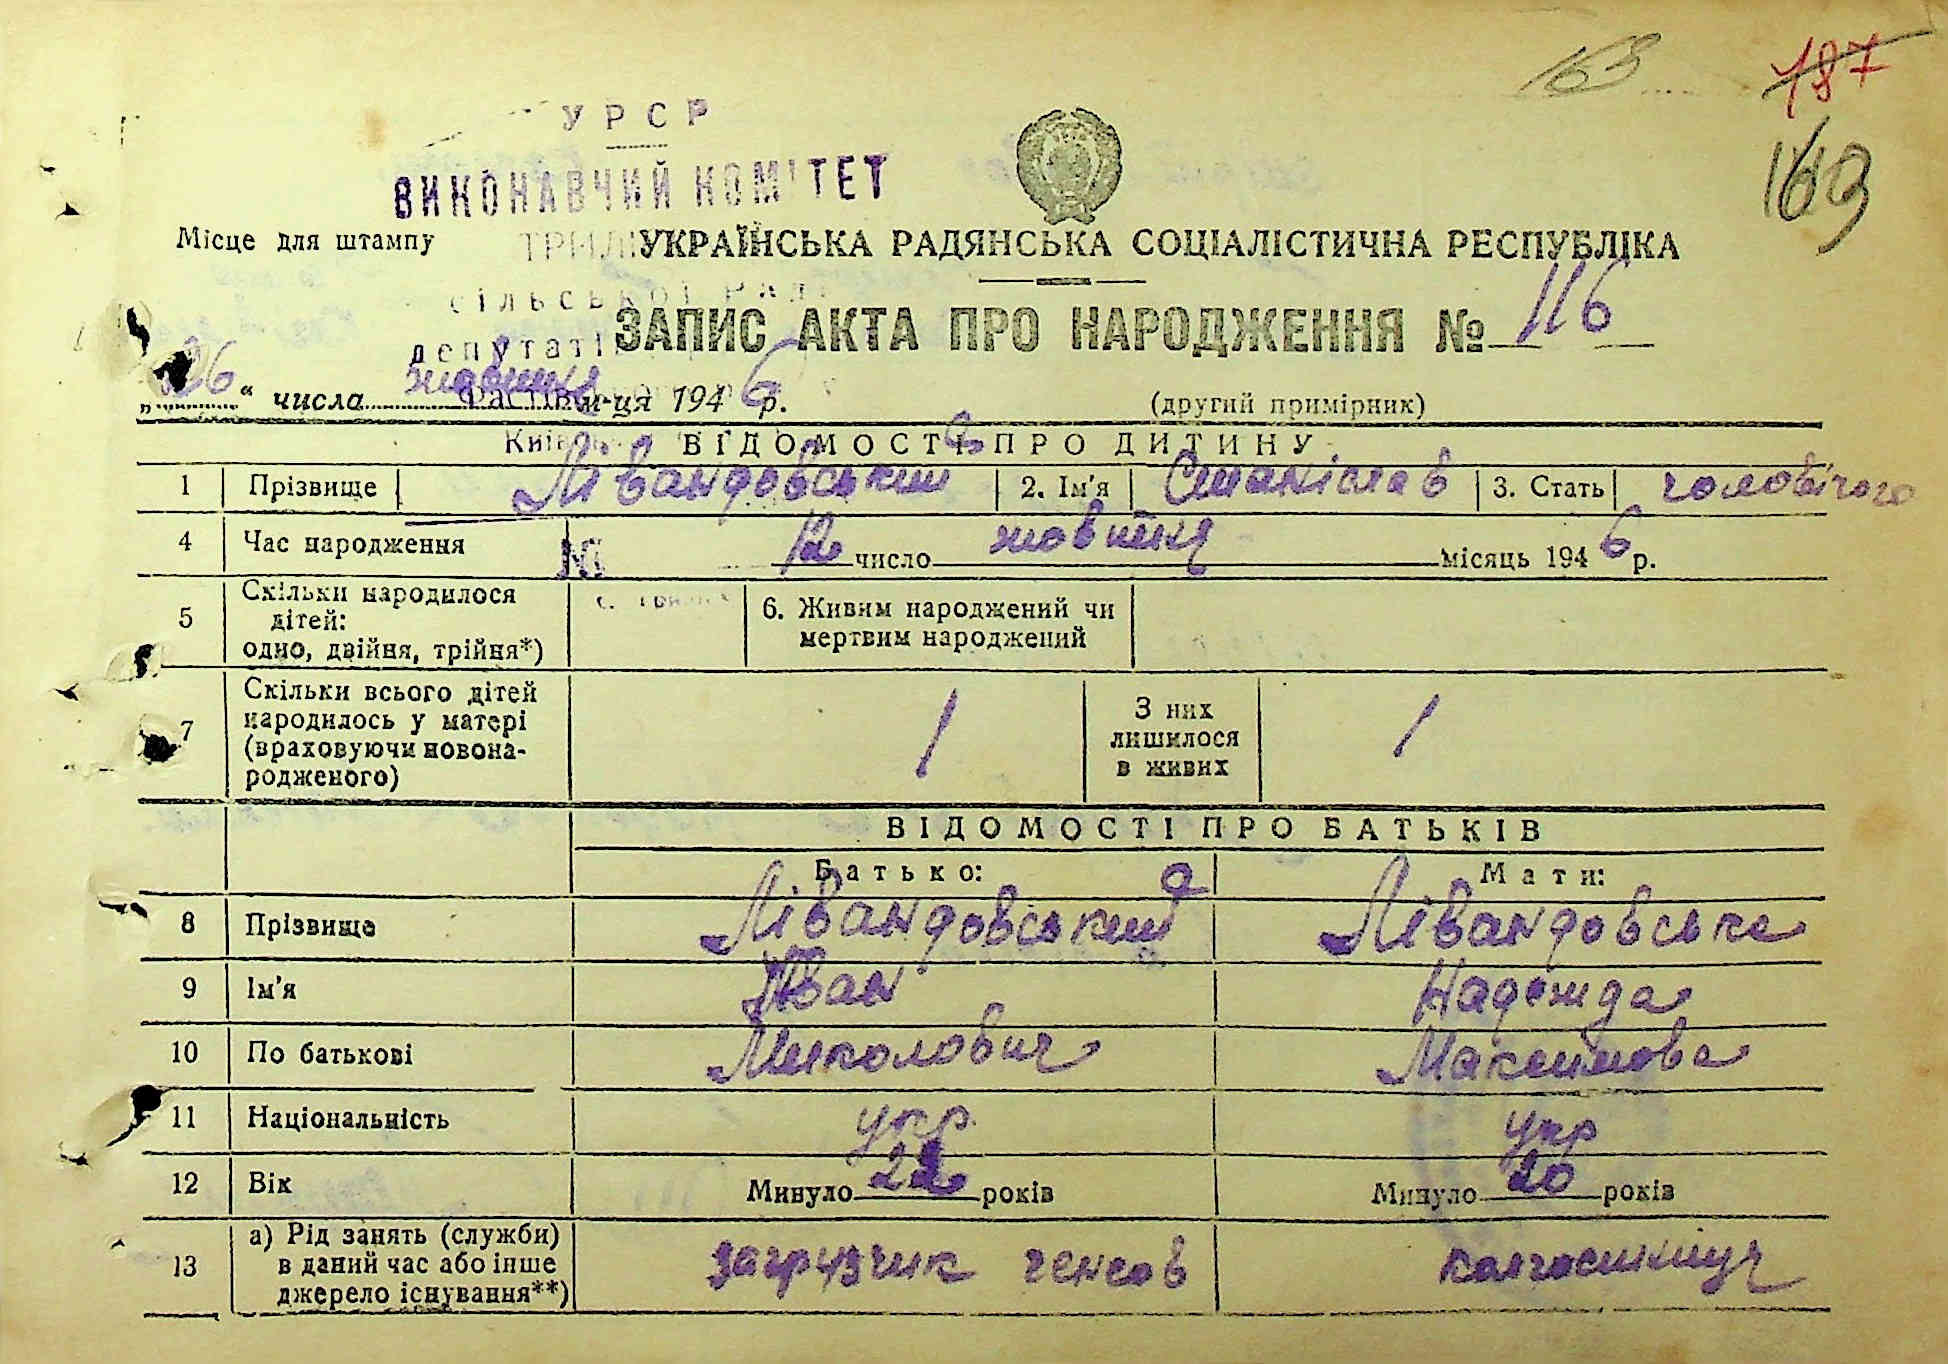 163
187
169
УРСР
ВИКОНАВЧИЙ КОМІТЕТ
Місце для штампу
УКРАЇНСЬКА РАДЯНСЬКА СОЦІАЛІСТИЧНА РЕСПУБЛІКА
СІЛЬСЬКОЇ РАДИ
ЗАПИС АКТА ПРО НАРОДЖЕННЯ № 116
депутатів
„26“ числа жовтня м-ця 1946 р.
(другий примірник)
ВІДОМОСТІ ПРО ДИТИНУ
1 Прізвище Лівандовський 2. Ім'я Станіслав 3. Стать чоловічого
4 Час народження 12 число жовтня місяць 1946 р.
5 Скільки народилося дітей: одно, двійня, трійня*) 6. Живим народжений чи мертвим народжений
7 Скільки всього дітей народилось у матері (враховуючи новонародженого) 1 З них лишилося в живих 1
ВІДОМОСТІ ПРО БАТЬКІВ
Батько: Мати:
8 Прізвище Лівандовський Лівандовська
9 Ім'я Іван Надежда
10 По батькові Миколович Максимова
11 Національність укр. укр
12 Вік Минуло 22 років Минуло 20 років
13 а) Рід занять (служби) в даний час або інше джерело існування**) загрузчик колгоспниця